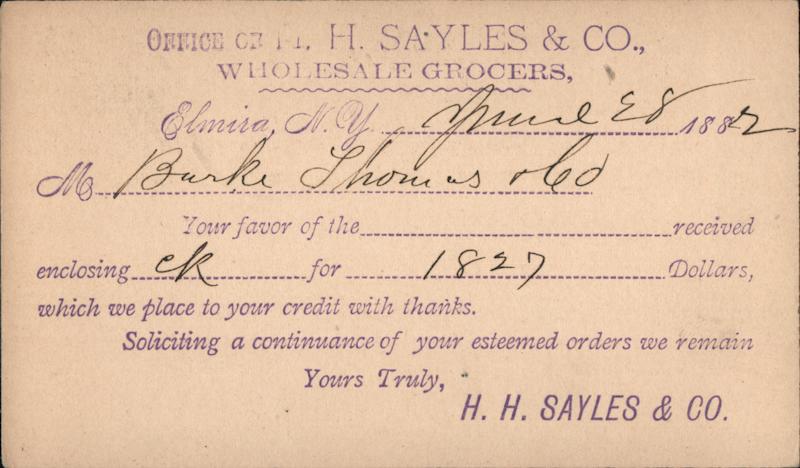 OFFICE OF H. H. SAYLES & CO.,
WHOLESALE GROCERS,
Elmira, N. Y. 28 1882
M Burke Thomas & Co
Your favor of the received
enclosing ck for 1827 Dollars,
which we place to your credit with thanks.
Soliciting a continuance of your esteemed orders we remain
Yours Truly,
H. H. SAYLES & CO.